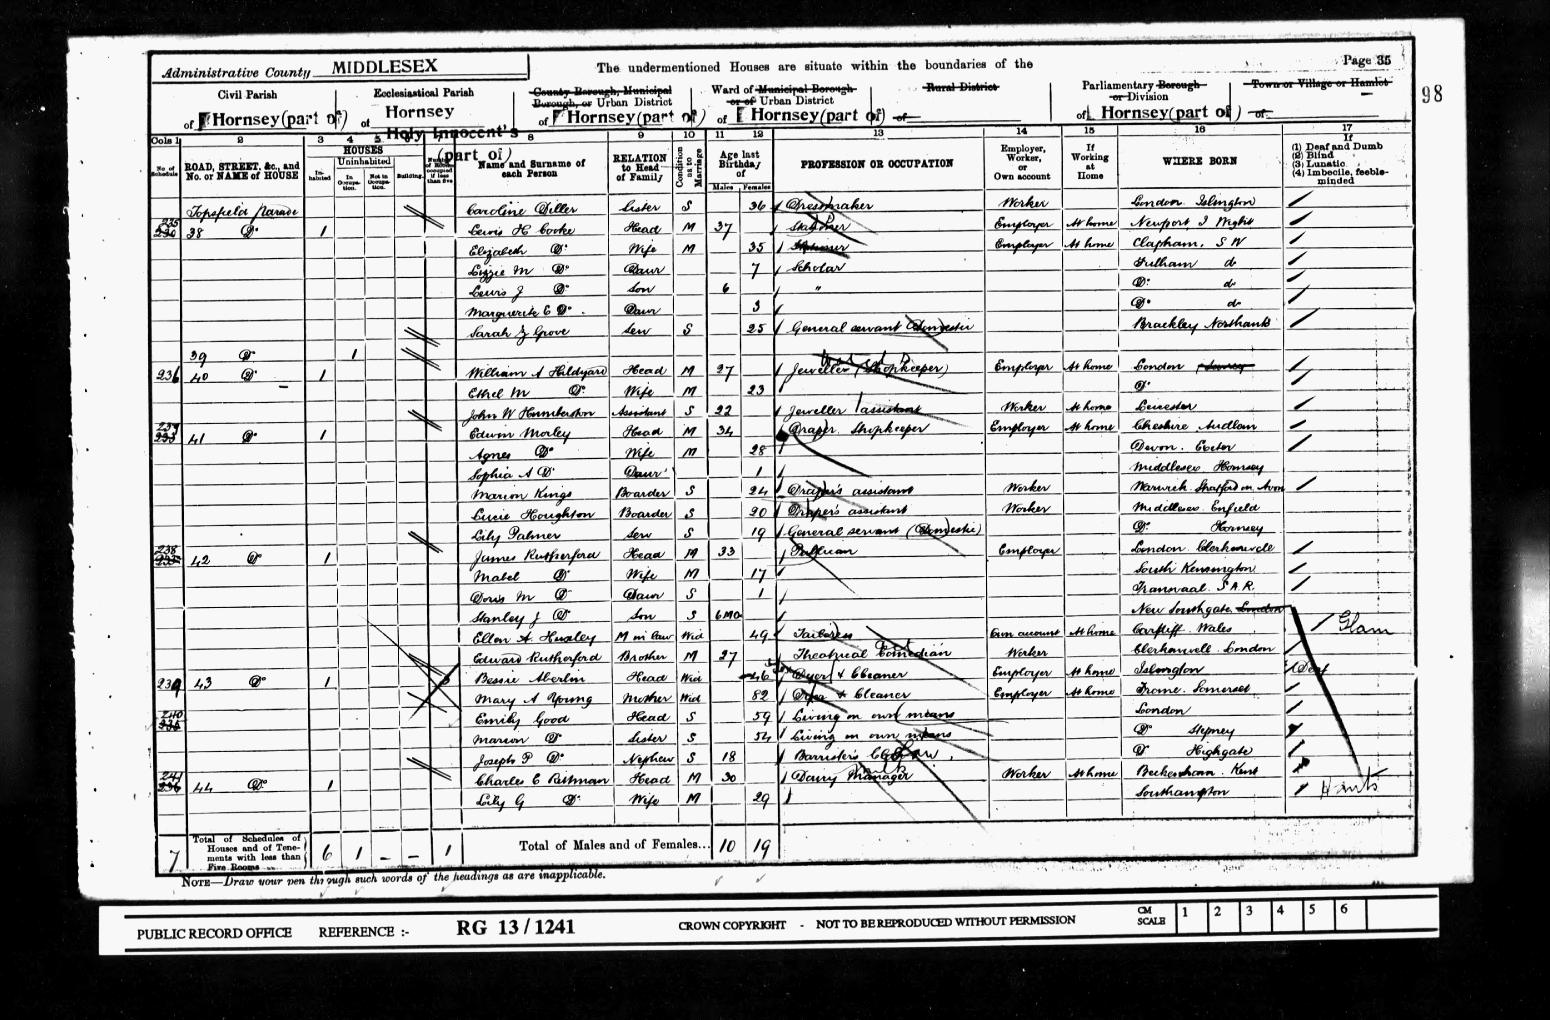 Administrative County MIDDLESEX
The undermentioned Houses are situate within the boundaries of the
Page 35
98
Civil Parish of Hornsey (part of)
Ecclesiastical Parish of Hornsey Holy Innocent's (part of)
County Borough, Municipal Borough, or Urban District of Hornsey (part of)
Ward of Municipal Borough or of Urban District of Hornsey (part of)
Rural District of —
Parliamentary Borough or Division of Hornsey (part of)
Town or Village or Hamlet of —
Cols 1 2 3 4 5 8 9 10 11 12 13 14 15 16 17
No. of Schedule
ROAD, STREET, &c., and No. or NAME of HOUSE
HOUSES
Inhabited
Uninhabited
In Occupation.
Not in Occupation.
Building.
Number of Rooms occupied if less than five
Name and Surname of each Person
RELATION to Head of Family
Condition as to Marriage
Age last Birthday of
Males Females
PROFESSION OR OCCUPATION
Employer, Worker, or Own account
If Working at Home
WHERE BORN
If (1) Deaf and Dumb (2) Blind (3) Lunatic (4) Imbecile, feeble-minded
Topsfield Parade Caroline Diller Sister S 36 Dressmaker Worker London Islington
235 38 Do 1 Lewis H Cooke Head M 37 Stationer Employer At home Newport I Wight
Elizabeth Do Wife M 35 Stationer Employer At home Clapham, S W
Lizzie M Do Daur 7 Scholar Fulham do
Lewis J Do Son 6 " Do do
Marguerite E Do Daur 3 Do do
Sarah J Grove Serv S 25 General servant Domestic Brackley Northants
39 Do 1
236 40 Do 1 William A Hildyard Head M 27 Jeweller (Shopkeeper) Employer At home London
Ethel M Do Wife M 23 Do
John W Humberston Assistant S 22 Jeweller assistant Worker At home Leicester
237 41 Do 1 Edwin Morley Head M 34 Draper Shopkeeper Employer At home Cheshire Audlam
Agnes Do Wife M 28 Devon. Exeter
Sophia A Do Daur 1 Middlesex Hornsey
Marion Kings Boarder S 24 Draper's assistant Worker Warwick Stratford on Avon
Lucie Houghton Boarder S 20 Draper's assistant Worker Middlesex Enfield
Lily Palmer Serv S 19 General servant (Domestic) Do Hornsey
238 42 Do 1 James Rutherford Head M 33 Employer London Clerkenwell
Mabel Do Wife M 17 South Kensington
Doris M Do Daur S 1 Transvaal S.A.R.
Stanley J Do Son S 6 Mo New Southgate London
Ellen A. Huxley M in law Wid 49 Tailoress Own account At home Cardiff Wales Glam
Edward Rutherford Brother M 27 Theatrical Comedian Worker Clerkenwell London
239 43 Do 1 5 Bessie Aberlin Head Wid 46 Dyer & Cleaner Employer At home Islington Deaf
Mary A Young Mother Wid 82 Dyer & Cleaner Employer At home Frome. Somerset
240 Emily Good Head S 59 Living on own means London
Marion Do Sister S 54 Living on own means Do Stepney
Joseph P Do Nephew S 18 Barrister's Clerk Do Highgate
241 44 Do 1 Charles E Pitman Head M 30 Dairy Manager Milk Worker At home Beckenham. Kent
Lily G Do Wife M 29 Southampton Hants
7 Total of Schedules of Houses and of Tenements with less than Five Rooms 6 1 – – 1
Total of Males and of Females... 10 19
NOTE—Draw your pen through such words of the headings as are inapplicable.
PUBLIC RECORD OFFICE REFERENCE :- RG 13/1241
CROWN COPYRIGHT - NOT TO BE REPRODUCED WITHOUT PERMISSION
CM SCALE 1 2 3 4 5 6